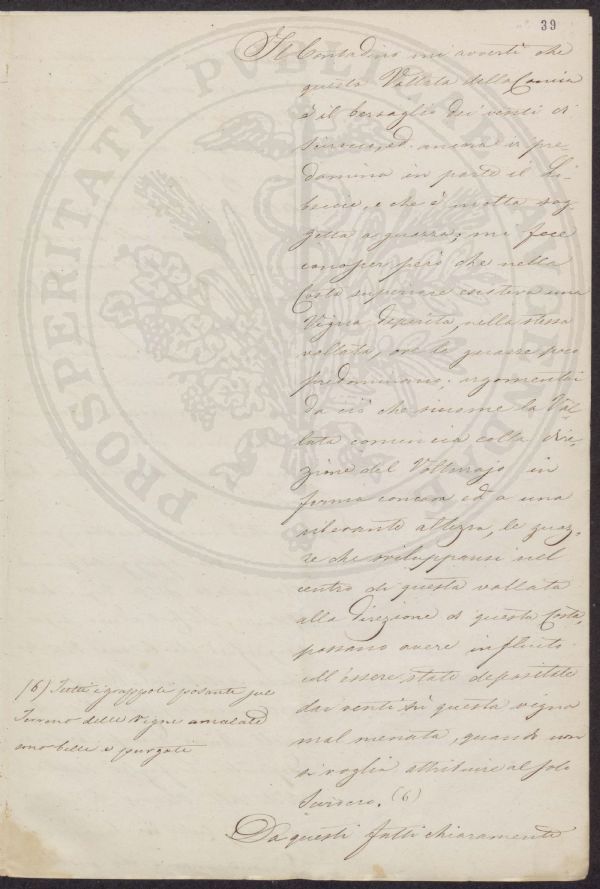 39
Il Contadino mi avvertì che
questa Vallata della Camia
è il bersaglio dei venti di
ed ancora vi pre-
domina in parte il Li-
beccio, e che è molto sog-
getta a guazza; mi fece
conoscer però che nella
Costa superiore esisteva una
Vigna deperita, nella stessa
vallata, ove le guazze poco
predominano: argomentai
da ciò che siccome la Val-
lata comincia colla dire-
zione del Volturajo in
forma concava ed a una
rilevante altezza, le guaz-
ze che sviluppansi nel
centro di questa vallata
alla direzione di questa Costa,
possano avere influito
coll'essere state depositate
dai venti su questa vigna
mal menata, quando non
si voglia attribuire al solo
(6)
Da questi fatti chiaramente
(6) Tutti i grappoli posanti sul
Terreno delle vigne amalate
sono belli e purgati
PROSPERITATI PVBLICAE AVGENDAE